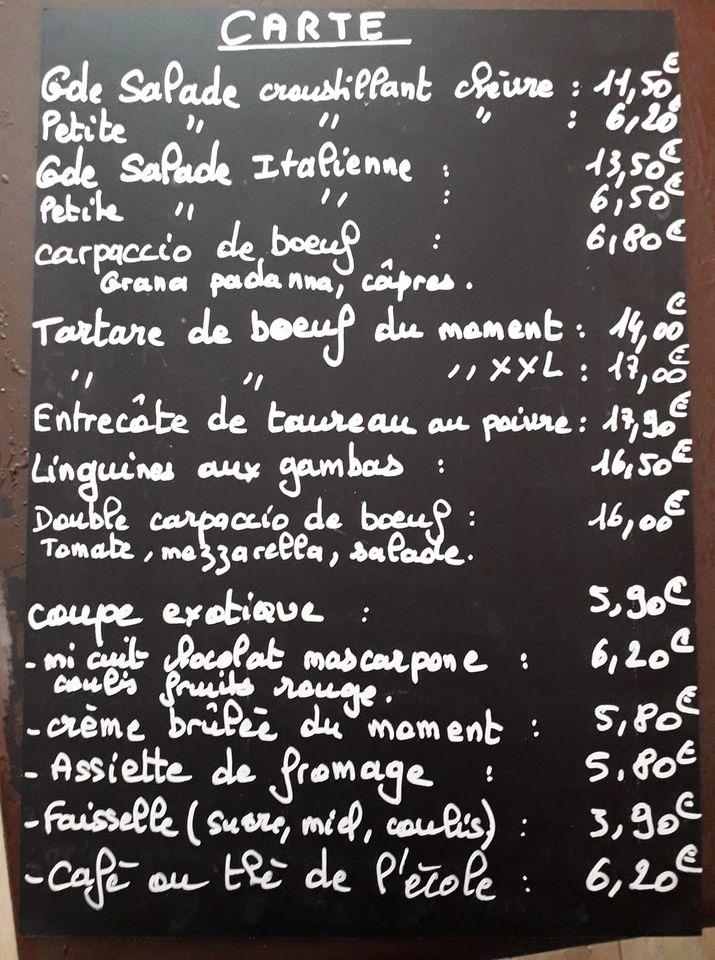 CARTE
Gde Salade croustillant chèvre : 11,50€
Petite " " " : 6,20€
Gde Salade Italienne : 13,50€
Petite " " : 6,50€
carpaccio de boeuf : 6,80€
Grana padanna, câpres.
Tartare de boeuf du moment : 14,00€
" " " XXL : 17,00€
Entrecôte de taureau au poivre : 17,90€
Linguines aux gambas : 16,50€
Double carpaccio de boeuf : 16,00€
Tomate, mozzarella, salade.
coupe exotique : 5,90€
- mi cuit chocolat mascarpone : 6,20€
coulis fruits rouge.
- crème brûlée du moment : 5,80€
- Assiette de fromage : 5,80€
- Faisselle (sucre, miel, coulis) : 3,90€
- Café ou thé de l'école : 6,20€